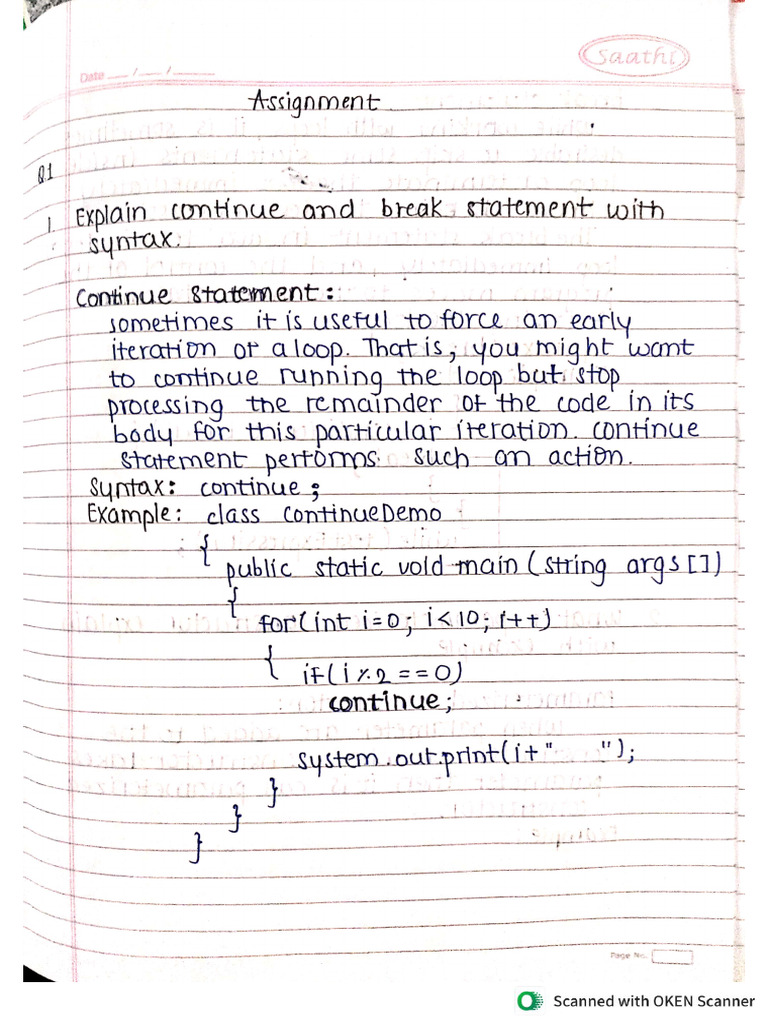 Saathi
Date __ / __ / ____
Assignment
Q1
1. Explain continue and break statement with
syntax.
Continue Statement :
sometimes it is useful to force an early
iteration of a loop. That is, you might want
to continue running the loop but stop
processing the remainder of the code in its
body for this particular iteration. continue
statement performs such an action.
Syntax: continue;
Example: class ContinueDemo
{
public static void main (string args [])
{
for(int i=0; i<10; i++)
{ if(i%2==0)
continue;
system.out.print(i+"   ");
}
}
}
Page No.
Scanned with OKEN Scanner